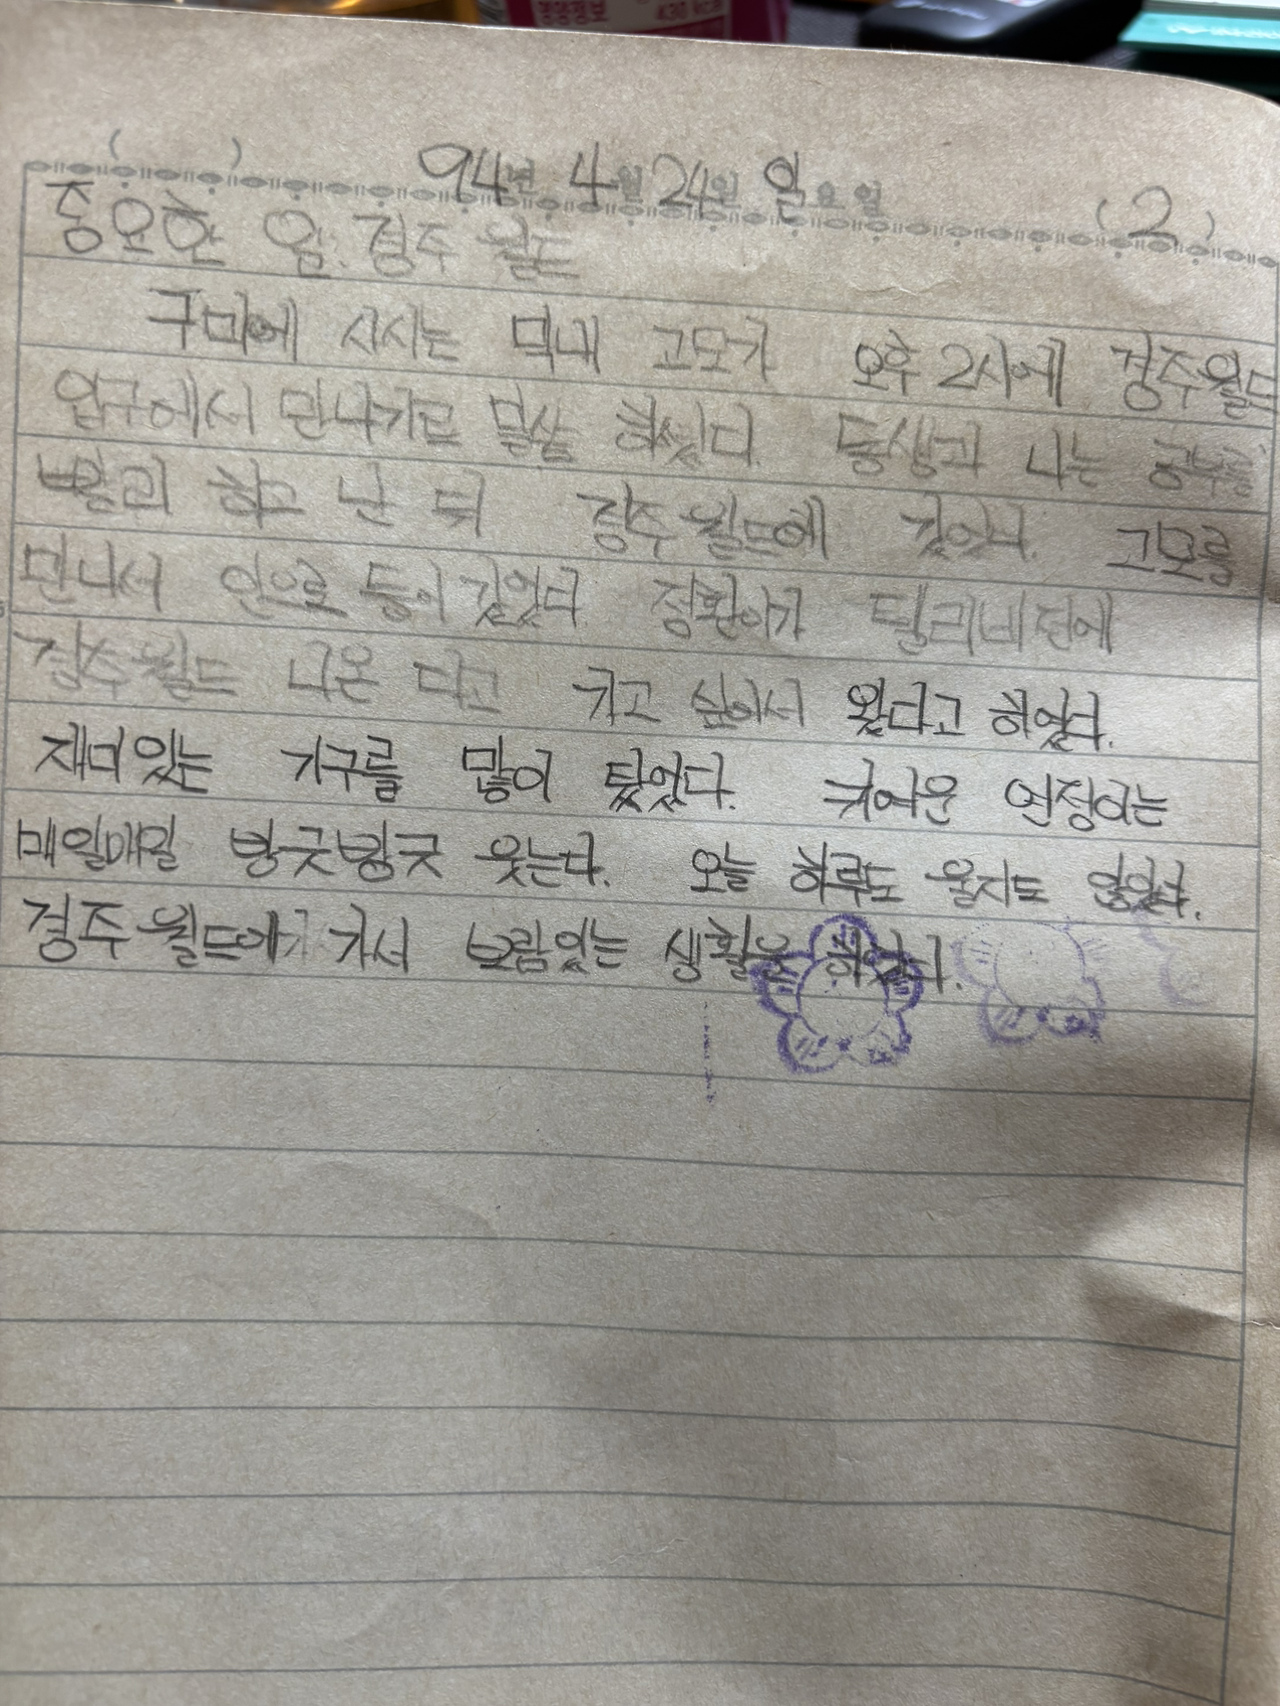 430 kcal
94년 4월 24일 일요일 (2)
중요한 일: 경주 월드
구미에 사시는 막내 고모가 오후 2시에 경주월드
입구에서 만나기로 말씀 하셨다. 동생과 나는 공부를
빨리 하고 난 뒤 경주월드에 갔었다. 고모를
만나서 안으로 들어 갔었다 정환이가 텔리비전에
경주월드 나온 다고 가고 싶어서 왔다고 하였다.
재미있는 기구를 많이 탔었다. 귀여운 연정이는
매일매일 방긋방긋 웃는다. 오늘 하루도 울지도 않았다.
경주월드에 가서 보람있는 생활을 하였다.